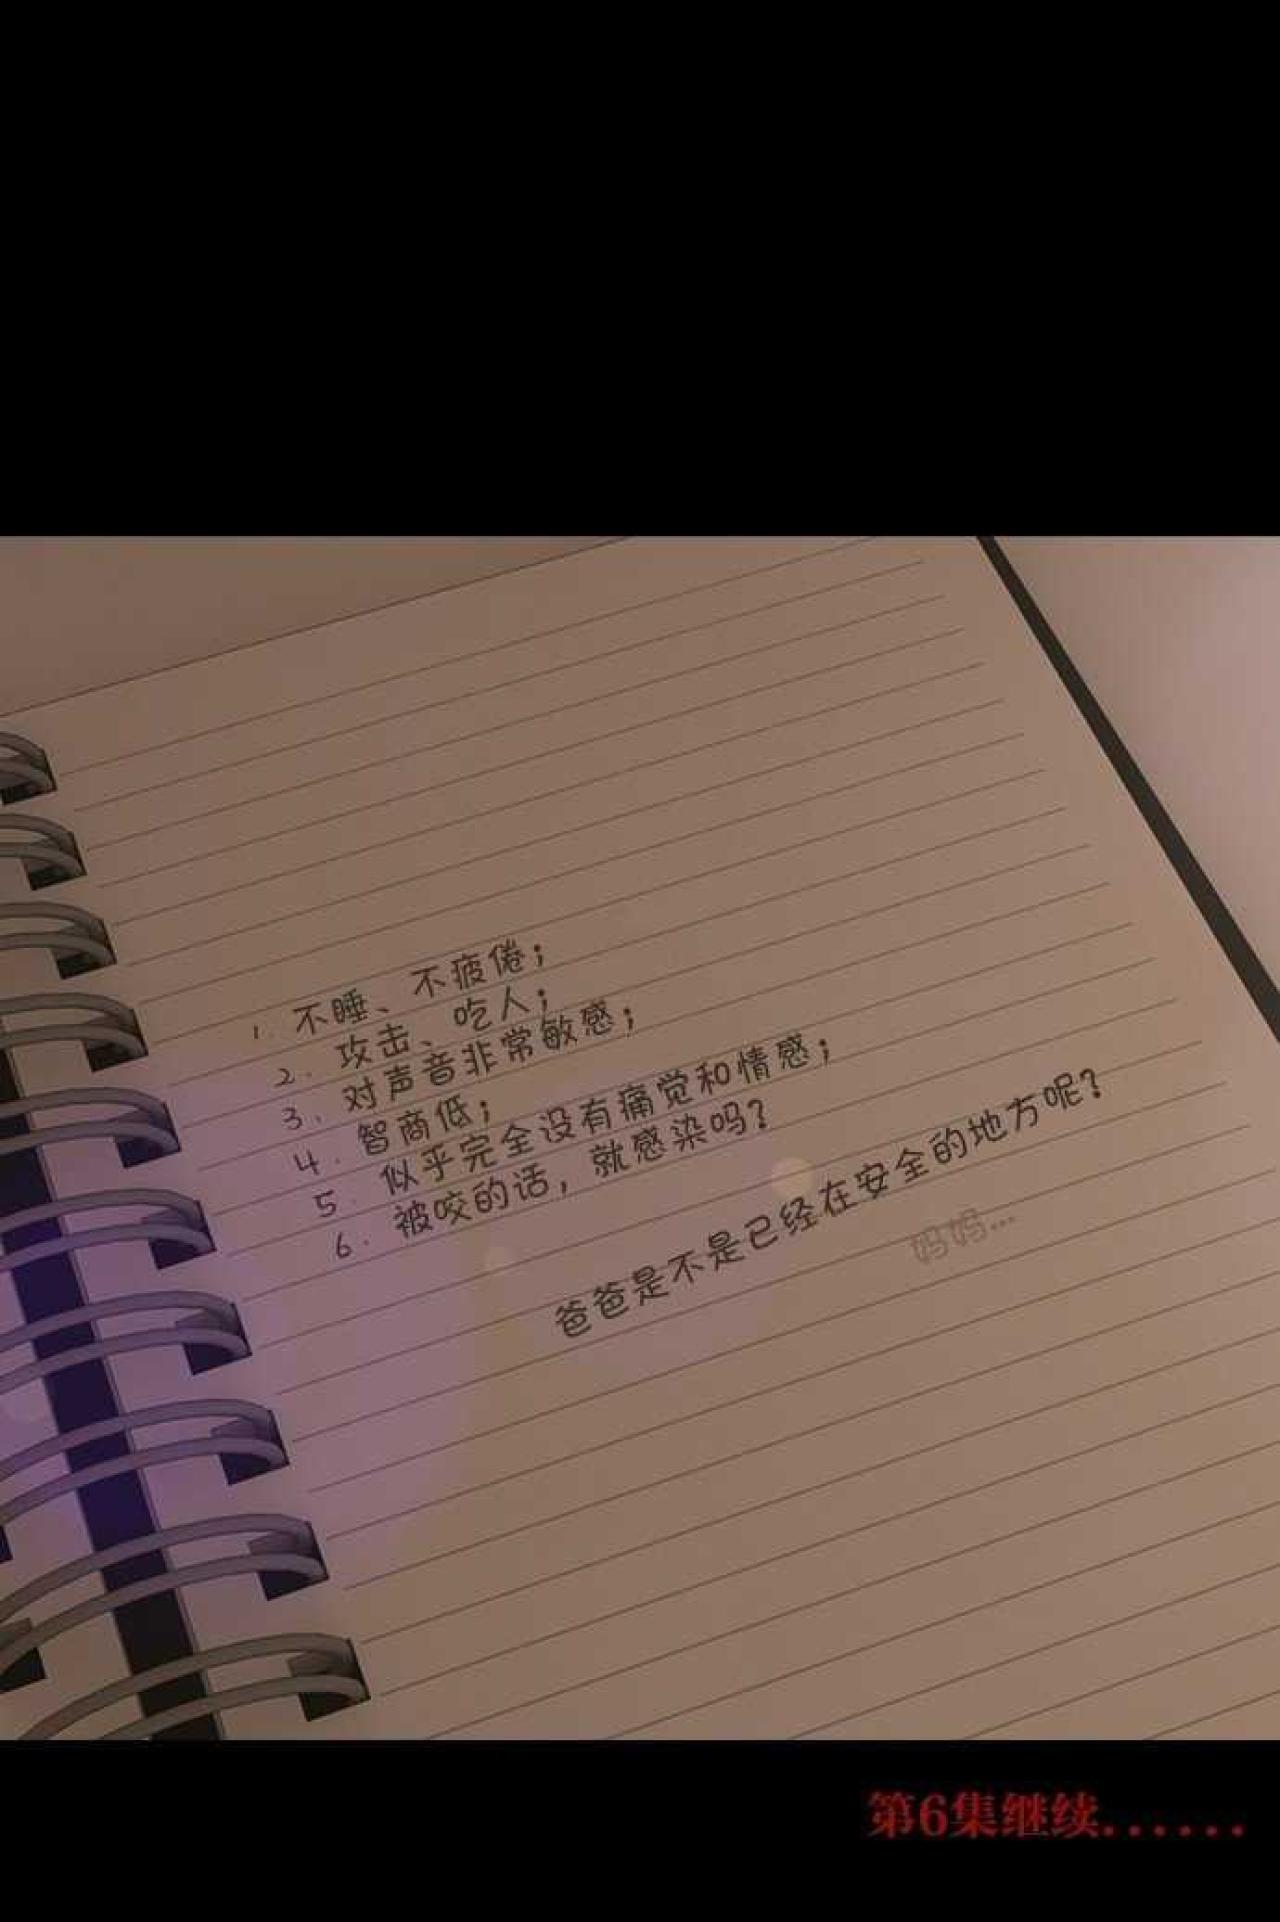 1. 不睡、不疲倦；
2. 攻击、吃人；
3. 对声音非常敏感；
4. 智商低；
5. 似乎完全没有痛觉和情感；
6. 被咬的话，就感染吗？
爸爸是不是已经在安全的地方呢？
妈妈...
第6集继续......